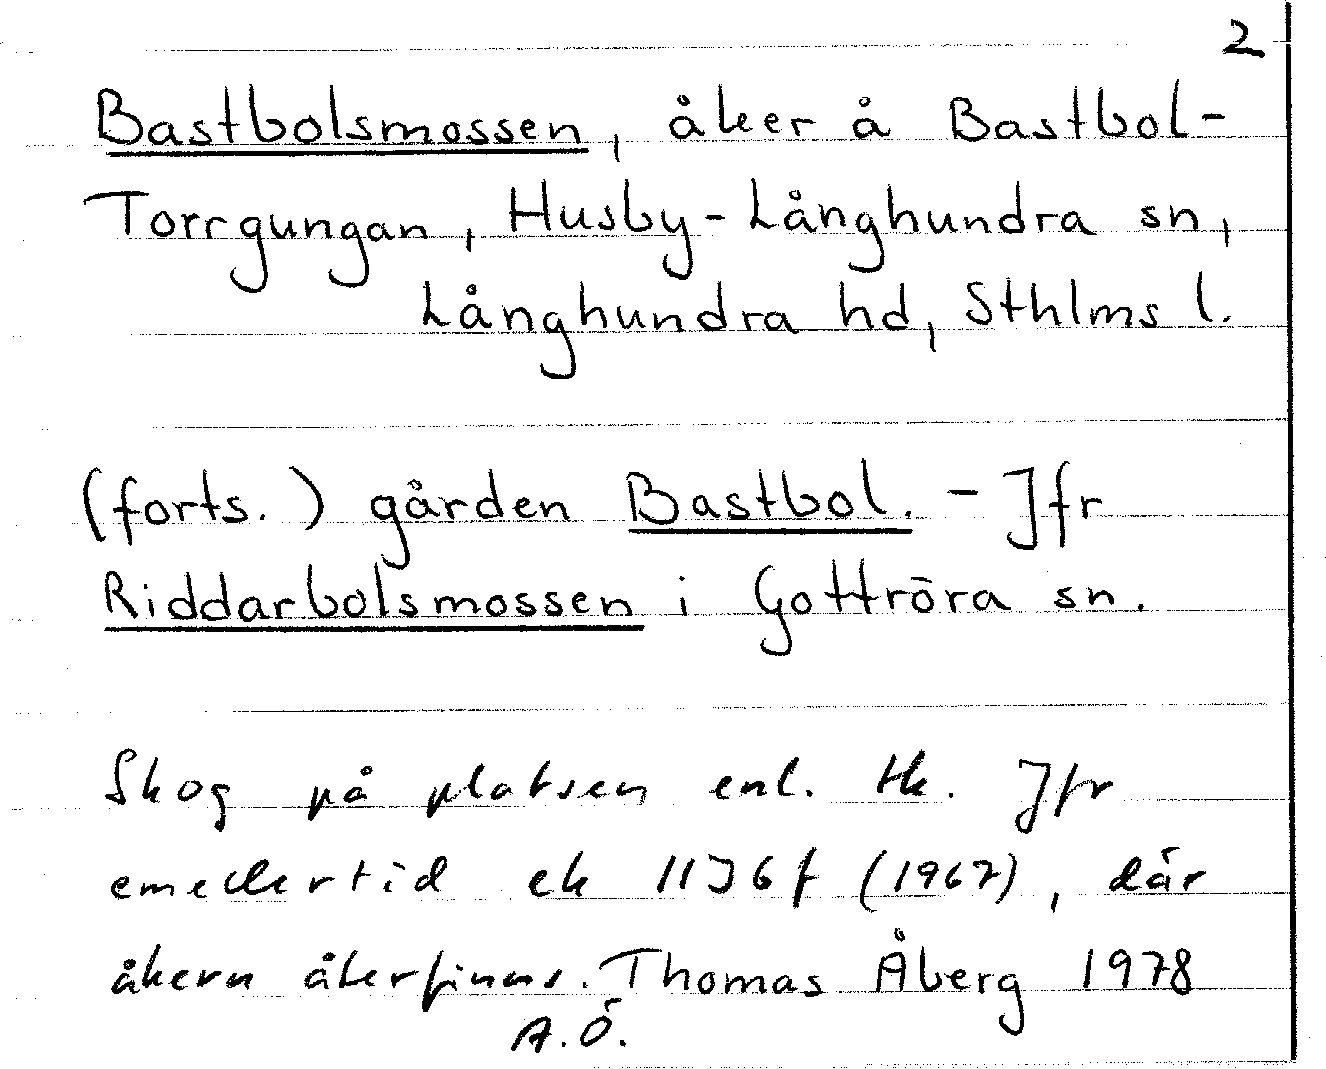 2
Bastbolsmossen, åker å Bastbol-
Torrgungan, Husby-Långhundra sn,
Långhundra hd, Sthlms l.
(forts.) gården Bastbol. - Jfr
Riddarbolsmossen i Gottröra sn.
Skog på platsen enl. tk. Jfr
emellertid ek 11J6f (1967), där
åkern återfinns. Thomas Åberg 1978
A.Ö.